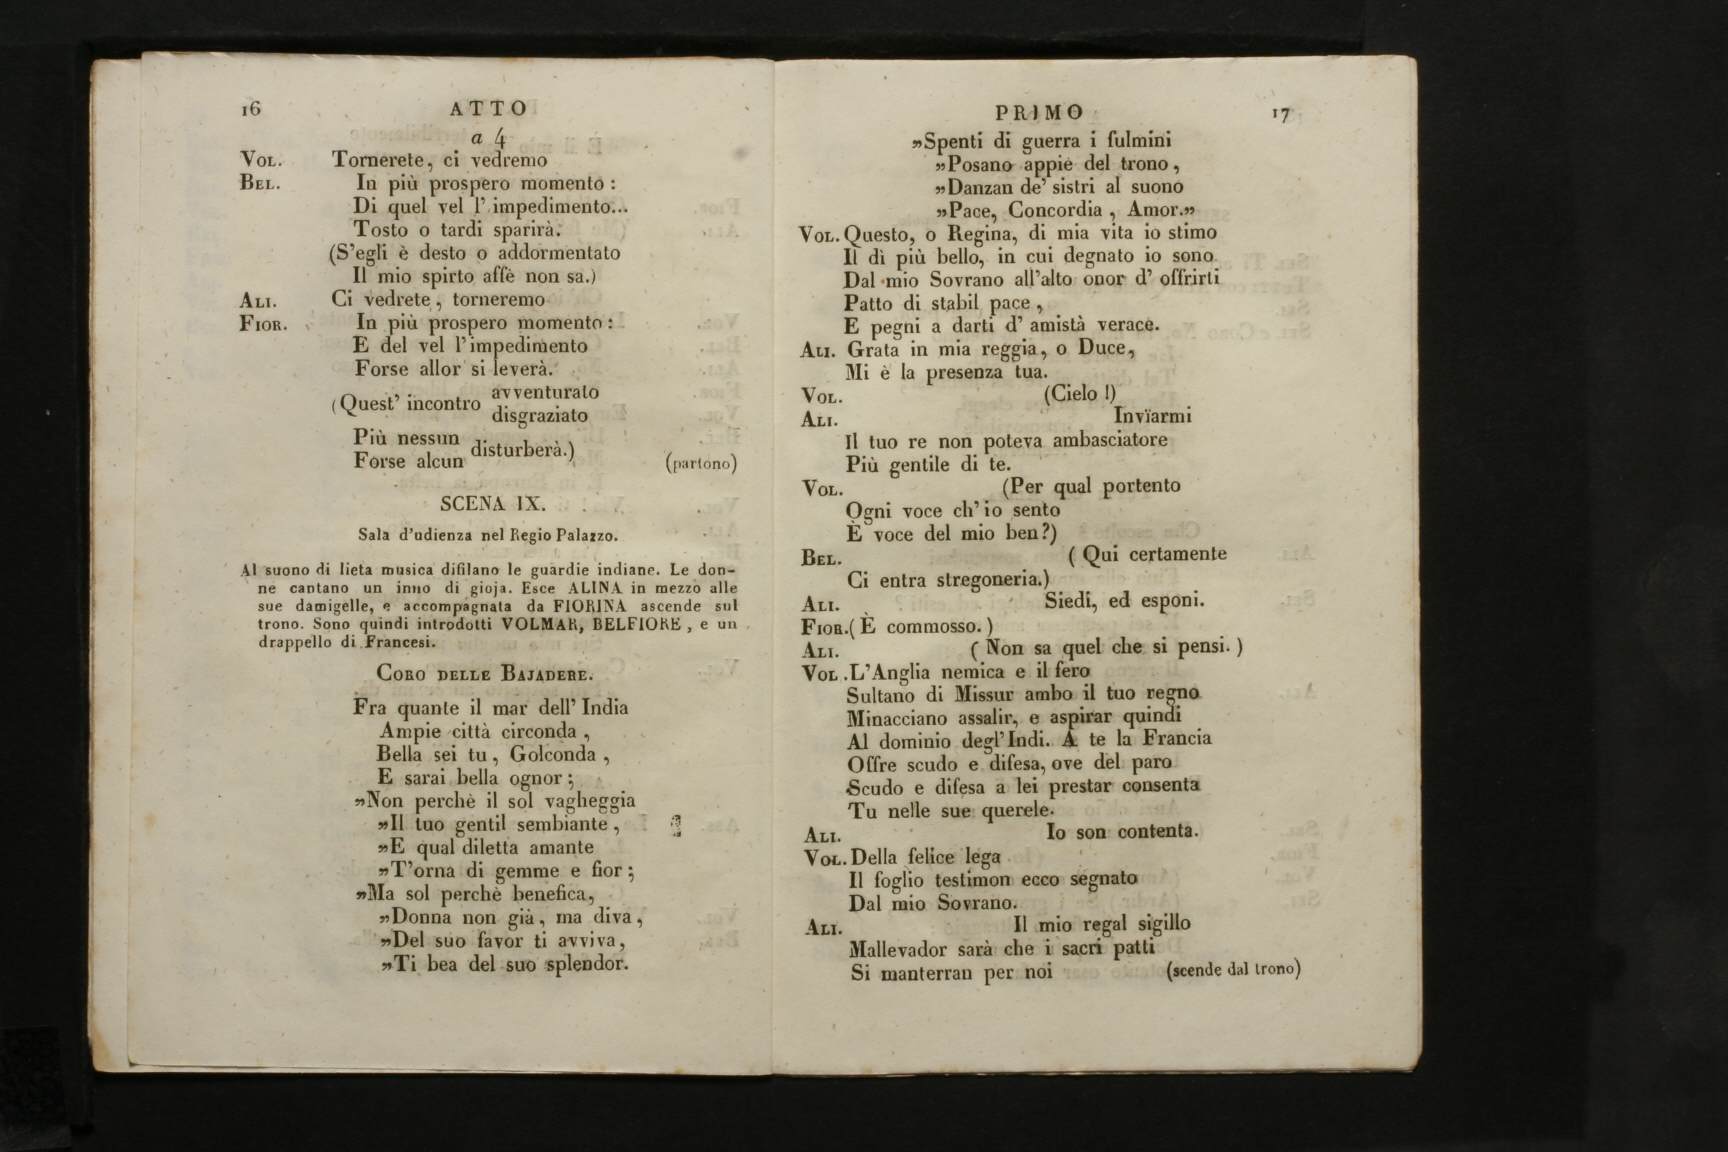 16 ATTO
a 4
VOL. Tornerete, ci vedremo
BEL. In più prospero momento :
Di quel vel l' impedimento...
Tosto o tardi sparirà.
(S'egli è desto o addormentato
Il mio spirto affè non sa.)
ALI. Ci vedrete, torneremo
FIOR. In più prospero momento :
E del vel l'impedimento
Forse allor si leverà.
(Quest' incontro avventurato
disgraziato
Più nessun disturberà.)
Forse alcun (partono)
SCENA IX.
Sala d'udienza nel Regio Palazzo.
Al suono di lieta musica difilano le guardie indiane. Le don-
ne cantano un inno di gioja. Esce ALINA in mezzo alle
sue damigelle, e accompagnata da FIORINA ascende sul
trono. Sono quindi introdotti VOLMAR, BELFIORE, e un
drappello di Francesi.
CORO DELLE BAJADERE.
Fra quante il mar dell' India
Ampie città circonda ,
Bella sei tu, Golconda ,
E sarai bella ognor ;
„Non perchè il sol vagheggia
„Il tuo gentil sembiante ,
„E qual diletta amante
„T'orna di gemme e fior ;
„Ma sol perchè benefica,
„Donna non già, ma diva,
„Del suo favor ti avviva,
„Ti bea del suo splendor.
PRIMO 17
„Spenti di guerra i fulmini
„Posano appiè del trono ,
„Danzan de' sistri al suono
„Pace, Concordia , Amor.„
VOL. Questo, o Regina, di mia vita io stimo
Il dì più bello, in cui degnato io sono
Dal mio Sovrano all'alto onor d' offrirti
Patto di stabil pace ,
E pegni a darti d' amistà verace.
ALI. Grata in mia reggia, o Duce,
Mi è la presenza tua.
VOL. (Cielo !)
ALI. Invïarmi
Il tuo re non poteva ambasciatore
Più gentile di te.
VOL. (Per qual portento
Ogni voce ch' io sento
È voce del mio ben?)
BEL. ( Qui certamente
Ci entra stregoneria.)
ALI. Siedi, ed esponi.
FIOR. ( È commosso. )
ALI. ( Non sa quel che si pensi. )
VOL. L'Anglia nemica e il fero
Sultano di Missur ambo il tuo regno
Minacciano assalir, e aspirar quindi
Al dominio degl'Indi. A te la Francia
Offre scudo e difesa, ove del paro
Scudo e difesa a lei prestar consenta
Tu nelle sue querele.
ALI. Io son contenta.
VOL. Della felice lega
Il foglio testimon ecco segnato
Dal mio Sovrano.
ALI. Il mio regal sigillo
Mallevador sarà che i sacri patti
Si manterran per noi (scende dal trono)